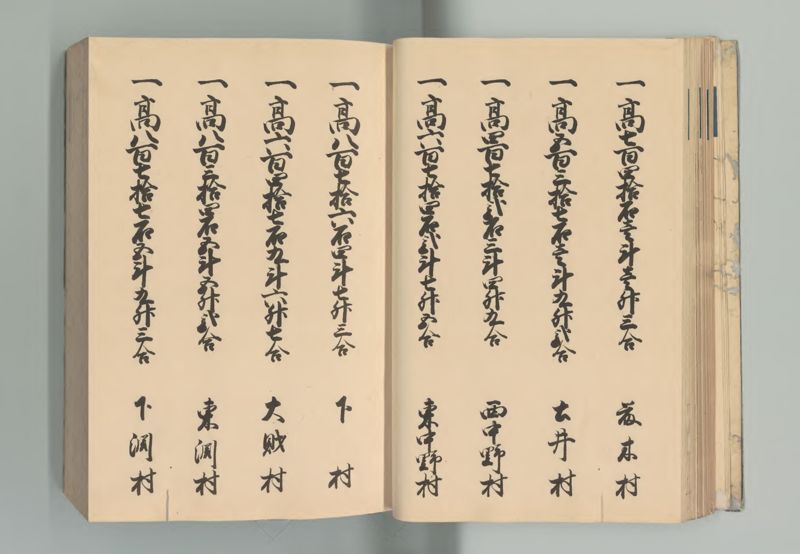 一高七百四拾石壱斗壱升三合 藤木村
一高五百三拾七石壱斗九升弐合 土井村
一高四百七拾弐石三斗四升九合 西中野村
一高六百七拾四石弐斗七升五合 東中野村
一高八百七拾六石四斗七升三合 下村
一高六百四拾七石九斗六升七合 大財村
一高八百三拾四石五斗五升弐合 東渕村
一高八百七拾七石五斗九升三合 下渕村